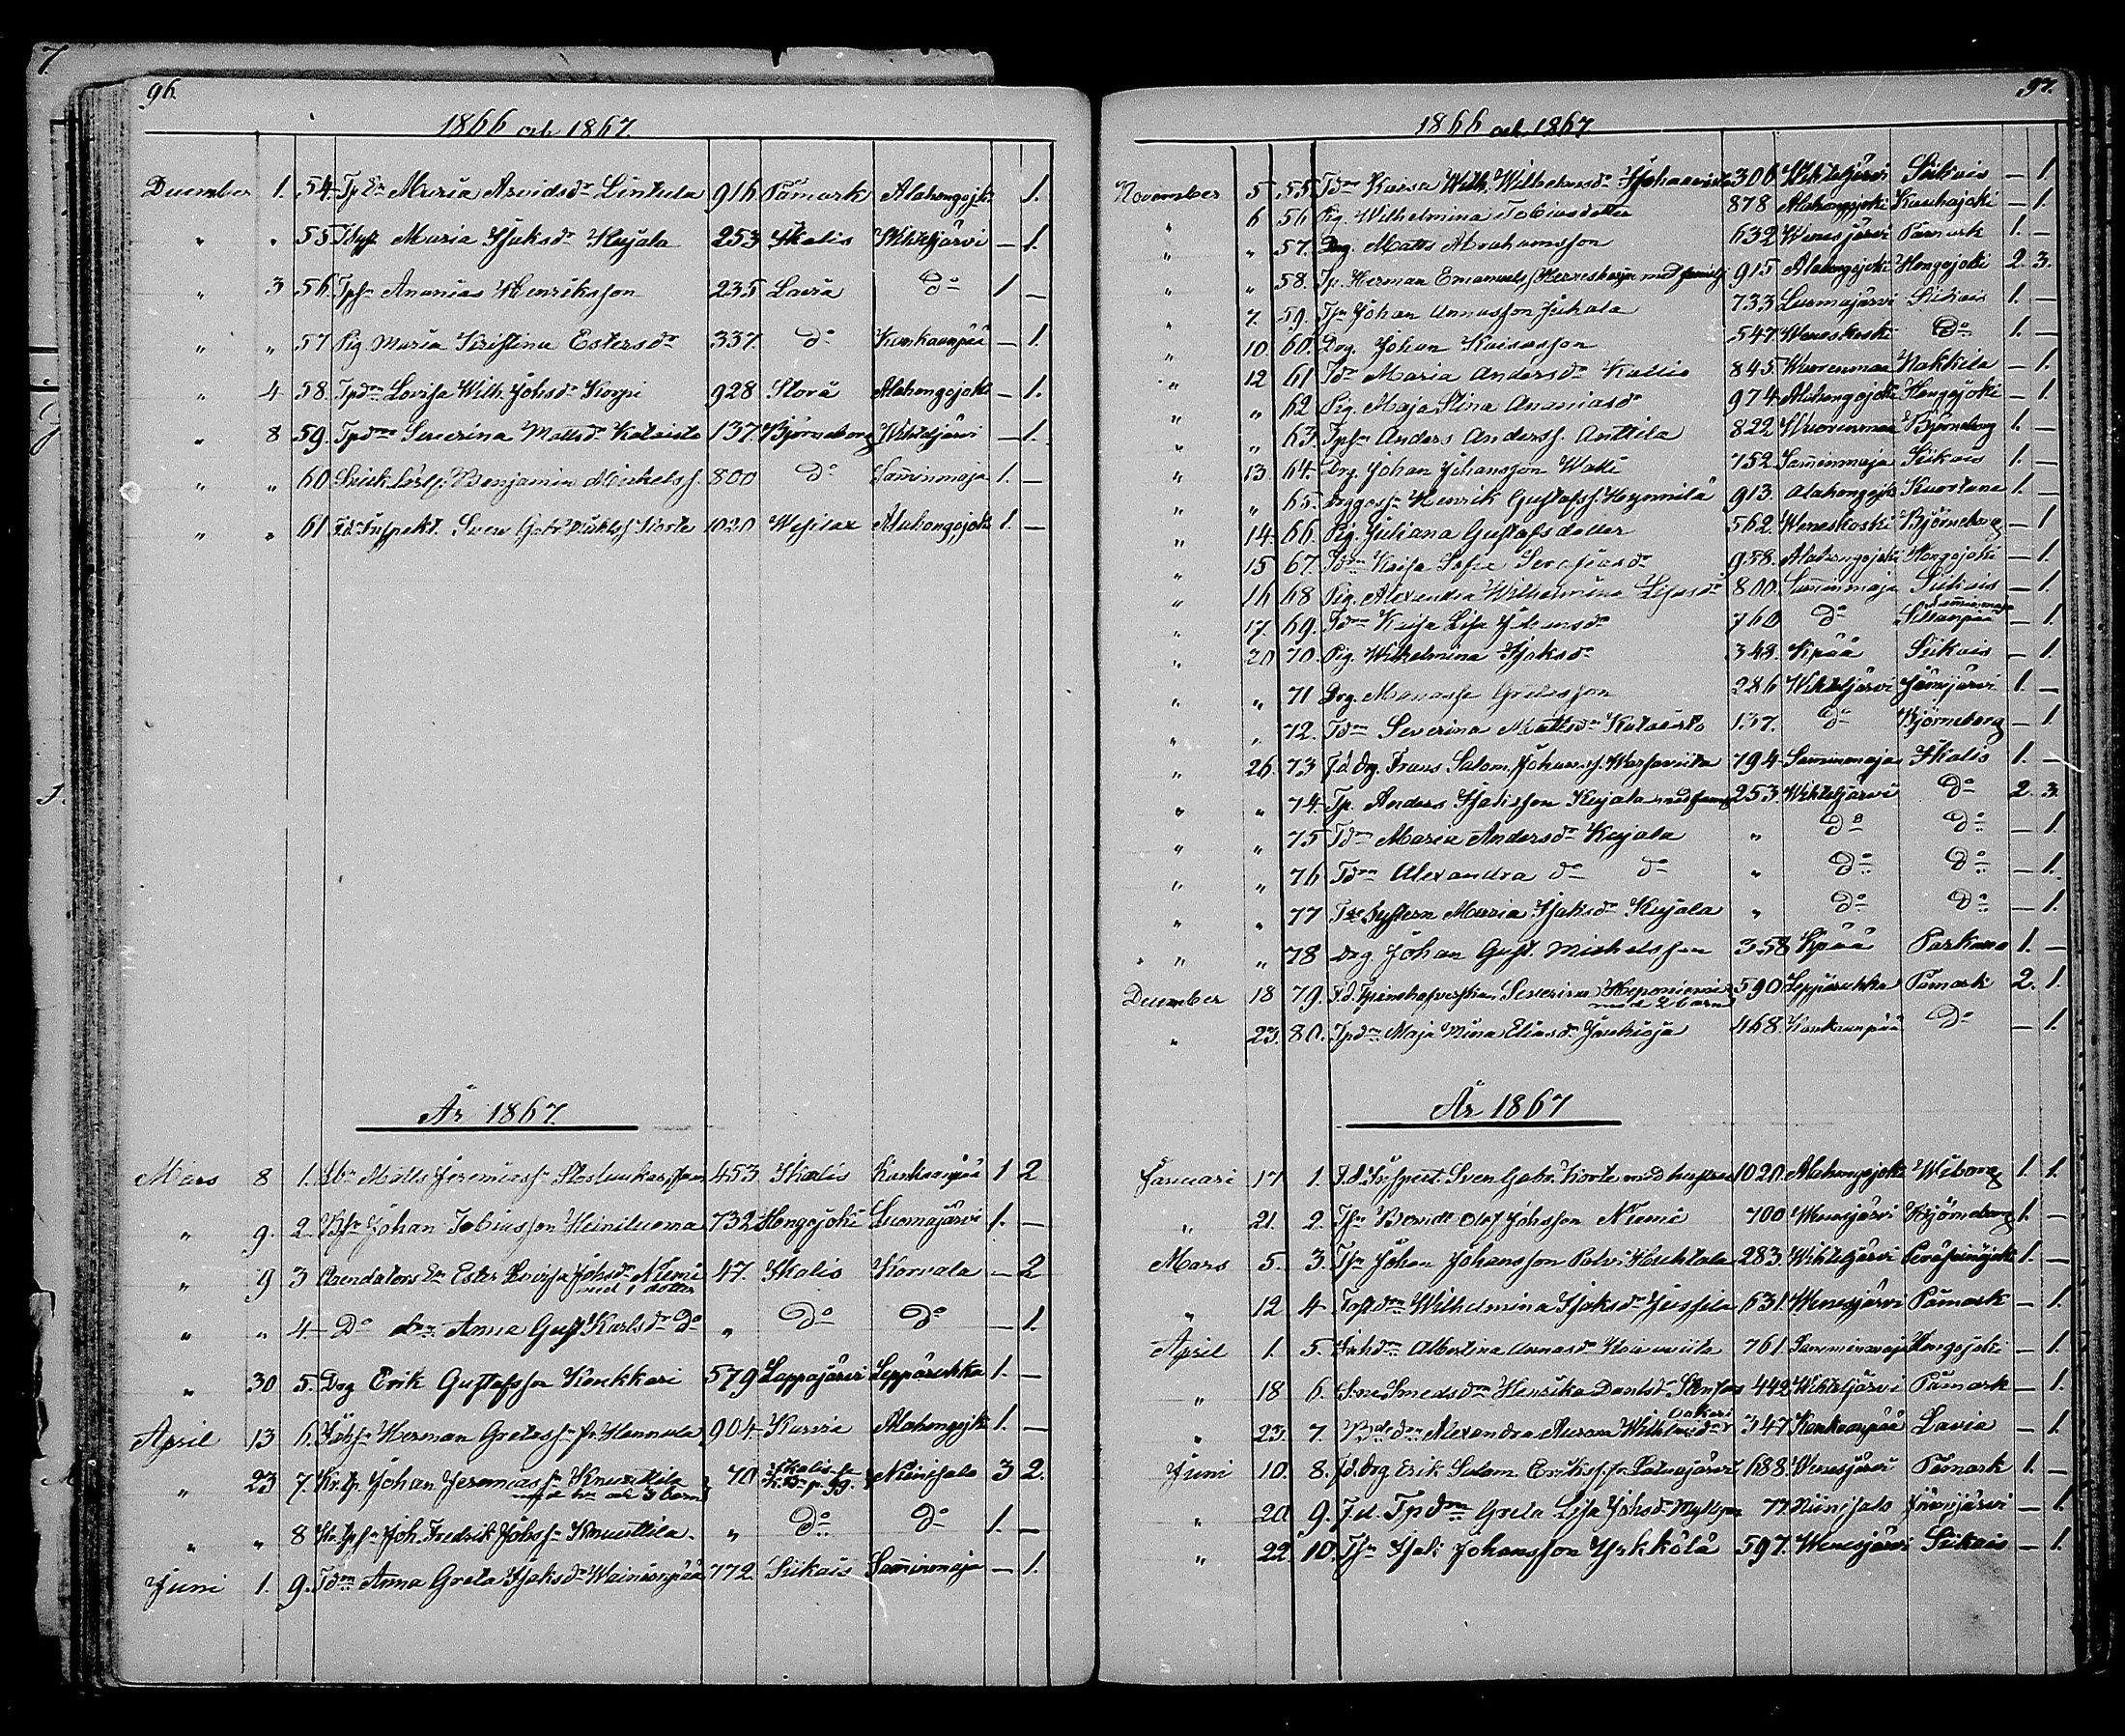 7.
96.
1866 och 1867.
December 1. 54. Tp Dn Maria Arvidsdr Lintula 916 Påmark Alahongojoki 1.
" " 55 Maria Isaksdr Kujala 253 Ikalis Wihteljärvi — 1.
" 3 56. Tpsn Ananias Henriksson 235 Lavia Do 1 —
" " 57 Pig Maria Kristina Estersdr 337 do Kankaanpää — 1.
" 4 58. Tpdn Lovisa Wilh. Johsdr Korpi 928 Storå Alahongojoki — 1.
" 8 59. Tpdn Severina Mattsdr Kataisto 137 Björneborg Wihteljärvi — 1.
" " 60 Benjamin Mickelss. 800 do Samminmaja 1. —
" " 61 F.d. Inspekt. Sven Gabr. Korte 1020 Wesilax Alahongojoki 1. —
År 1867.
Mars 8 1. Matts Jeremiass. 453 Ikalis Kankaanpää 1 2
" 9. 2. Johan Tobiasson Heiniluoma 732 Hongojoki Luomajärvi 1. —
" 9 3 Arendators Dn Ester Lovisa Johsdr Niemi 47. Ikalis Korvala — 2
med 1 dotter
" " 4 Do dn Anna Gust. Karlsdr Do " Do Do — 1.
" 30 5. Drg Erik Gustafsson Kenkkari 579 Lappajärvi Leppäruhka 1. —
April 13 6. Herman Gretass. fr. Hannula 904 Karvia Alahongojoki 1. —
" 23 7. Johan Jeremiass. Knuuttila 70 Ikalis Niinisalo 3 2.
3 barn
" " 8 Joh. Fredrik Johss. Knuuttila " Do Do 1. —
Juni 1. 9. Tdn Anna Greta Isaksdr Wainionpää 772 Siikais Samminmaja — 1.
97.
1866 och 1867
November 5 55 Tdn Kaisa Wilh. Wilhelmsdr 306 Wihteljärvi Siikais — 1
" 6 56 Pig. Wilhelmina Tobiasdotter 878 Alahongojoki Kauhajoki — 1.
" " 57. Drg. Matts Abrahamsson 632 Wenesjärvi Påmark 1. —
" " 58. Tp. Herman Emanuels. med familj 915 Alahongojoki Hongojoki 2 3.
" 7. 59. Tsn Johan Annasson Juhala 733 Luomajärvi Siikais 1. —
" 10 60. Drg. Johan Kaisasson 547 Weneskoski Do 1. —
" 12 61 Tdr Maria Andersdr Kallio 845 Wuorenmaa Nakkila — 1.
" " 62 Pig. Maja Stina Ananiasdr 974 Alahongojoki Hongojoki — 1
" " 63. Tpsn Anders Anderss. Anttila 822 Wuorenmaa Björneborg 1. —
" 13 64. Drg. Johan Johansson Watti 752 Samminmaja Siikais 1. —
" " 65. Henrik Gustafss. Hynnilä 913. Alahongojoki Kuortane 1. —
" 14. 66. Pig. Juliana Gustafsdotter 562. Weneskoski Björneborg — 1
" 15 67. Tdn Kaisa Sofia Serafiasdr 958. Alahongojoki Hongojoki — 1.
" 16 68 Pig. Alexandra Wilhelmina Lisasdr 800. Samminmaja Siikais — 1.
" 17. 69. Tdn Kaisa Lisa 760 do — 1.
" 20 70. Pig. Wilhelmina Isaksdr 348. Kpää Siikais — 1.
" " 71 Drg. Manasse Gretasson 286 Wihteljärvi Jämijärvi 1. —
" " 72. Tdn Severina Mattsdr Kataisto 137. do Björneborg — 1
" 26. 73 F.d. drg. Frans Salom. Johanss. 794 Samminmaja Ikalis 1. —
" " 74. Tp. Anders Isaksson Kujala med familj 253. Wihteljärvi Do 2. 3.
" " 75 Tdn Maria Andersdr Kujala " Do Do — 1
" " 76 Tdn Alexandra do do " Do Do — 1.
" " 77 Systern Maria Isaksdr Kujala " Do Do — 1.
" " 78 Drg Johan Gust. Michelsson 358 Kpää Parkano 1. —
December 18 79. F.d. Severina Heponiemi 590 Leppäruhka Påmark 2. 1.
med 2 barn
" 23. 80. Tpdn Maja Stina Eliasdr 468. Kankaanpää Do — 1.
År 1867
Januari 17 1. F.d. Inspect. Sven Gabr. Korte med hustru 1020. Alahongojoki Wiborg 1. 1.
" 21. 2. Tsn Berndt Olof Johsson Niemi 700 Wenesjärvi Björneborg 1. —
Mars 5. 3. Tsn Johan Johansson 283. Wihteljärvi Peräseinäjoki 1. —
" 12 4 Wilhelmina Isaksdr Jussila 631. Wenesjärvi Påmark — 1.
April 1. 5. Albertina Annasdr 761. Samminmaja Hongojoki — 1.
" 18 6. Henrika 442 Wihteljärvi Påmark — 1.
" 23. 7. Alexandra Aurora Wilhelmsdr 347 Kankaanpää Lavia — 1.
Juni 10. 8. F.d. drg Erik Salom. Erikss. fr. Latvajärvi 688. Wenesjärvi Påmark 1. —
" 20 9. F.d. Tpdn Greta Lisa Johsdr 77. Niinisalo Jämijärvi — 1.
" 22. 10. Tsn Isak Johansson Yrkkölä 597. Wenesjärvi Siikais — 1.